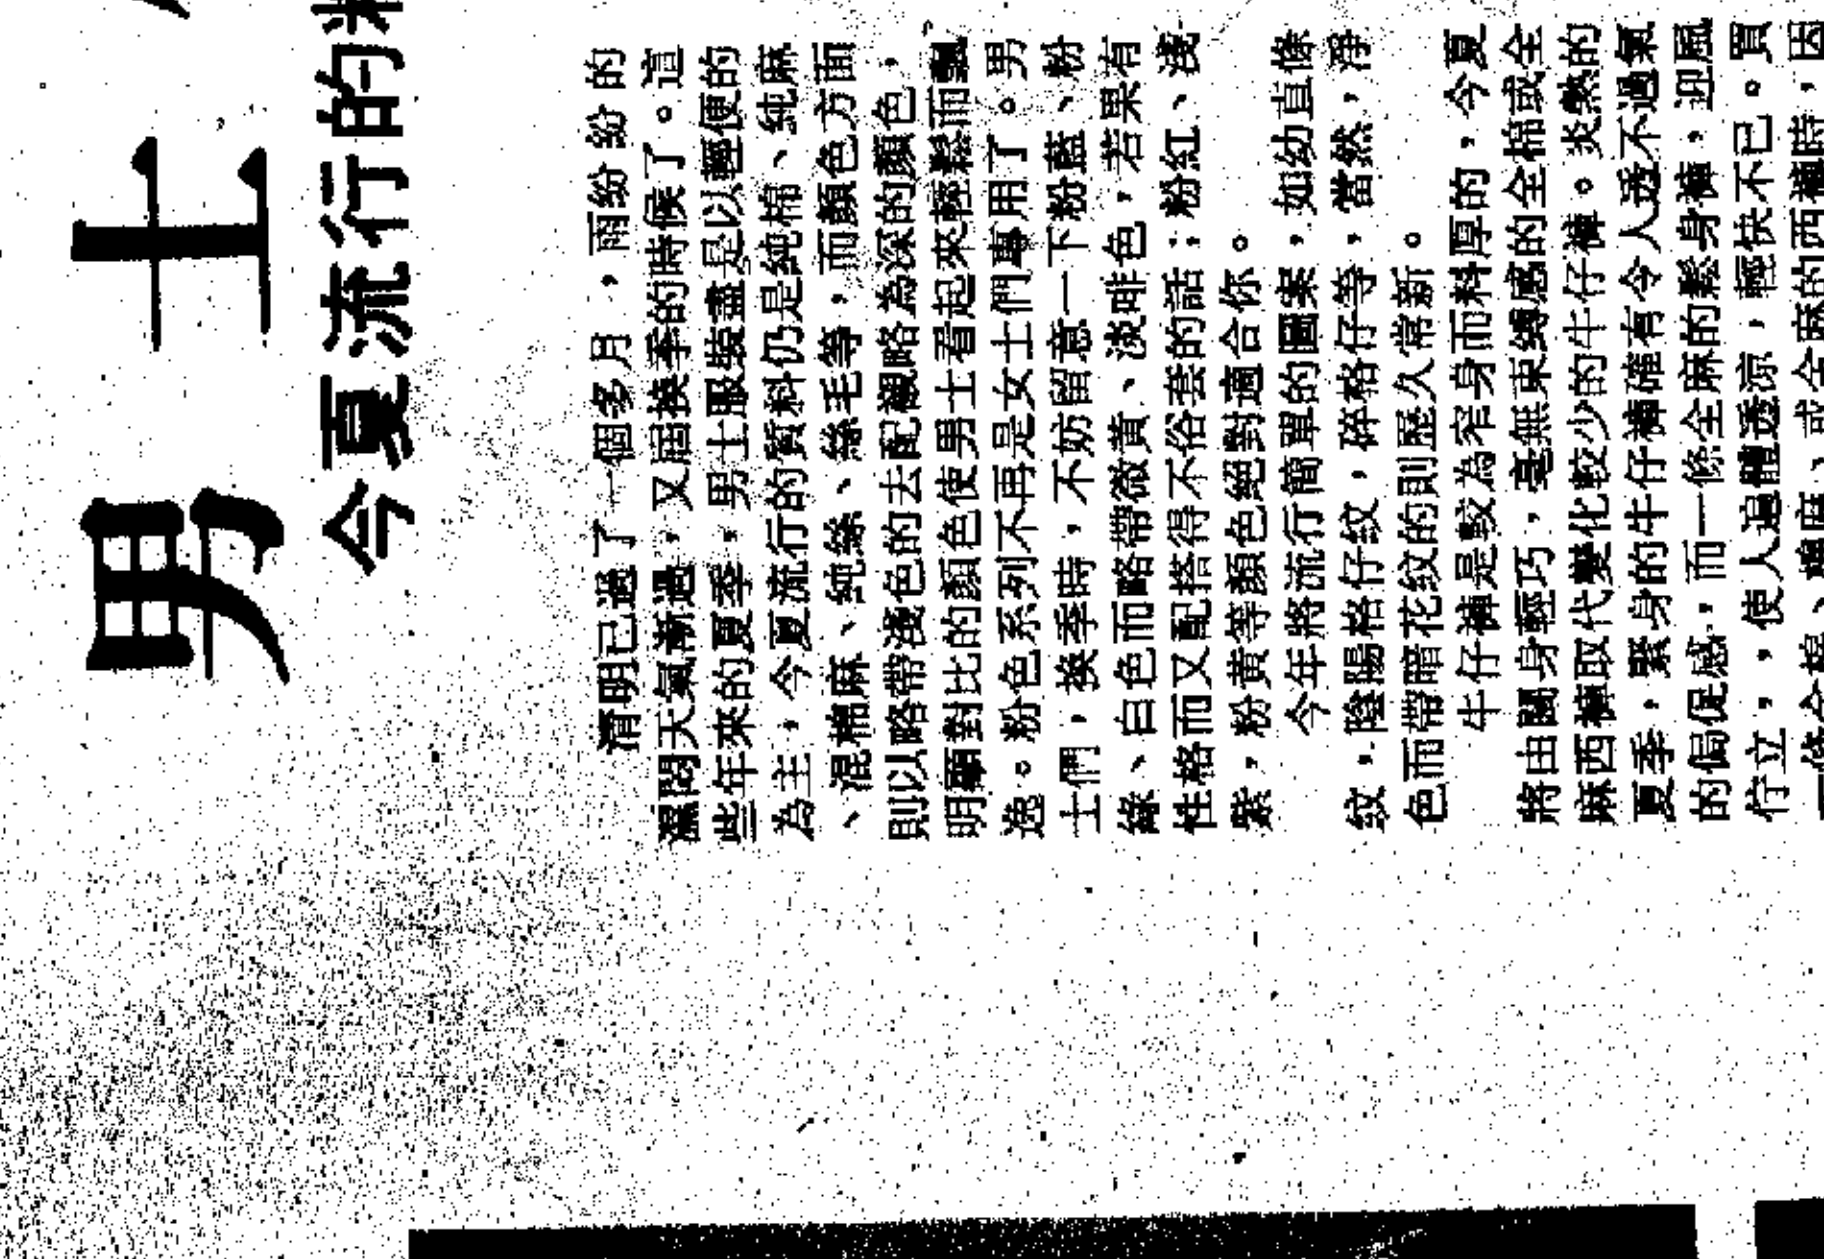 男士
今夏流行的
清明已過了一個多月，雨紛紛的
濕悶天氣漸過，又屆換季的時候了。這
些年來的夏季，男士服裝盡是以輕便的
為主，今夏流行的質料仍是純棉、純麻
、混棉麻、純絲、絲毛等，而顏色方面
則以略帶淺色的去配襯略為深的顏色，
明顯對比的顏色使男士看起來輕鬆而飄
逸。粉色系列不再是女士們專用了。男
士們，換季時，不妨留意一下粉藍、粉
綠、白色而略帶微黃、淡啡色，若果有
性格而又配搭得不俗套的話；粉紅、淺
紫，粉黃等顏色絕對適合你。
今年將流行簡單的圖案，如幼直條
紋，陰陽格仔紋，碎格仔等，當然，淨
色而帶暗花紋的則歷久常新。
牛仔褲是較為窄身而料厚的，今夏
將由闊身輕巧，毫無束縛感的全棉或全
麻西褲取代變化較少的牛仔褲。炎熱的
夏季，緊身的牛仔褲確有令人透不過氣
的侷促感，而一條全麻的鬆身褲，迎風
佇立，，使人遍體透涼，輕快不已。買
一條全棉、棉麻、或全麻的西褲時，因